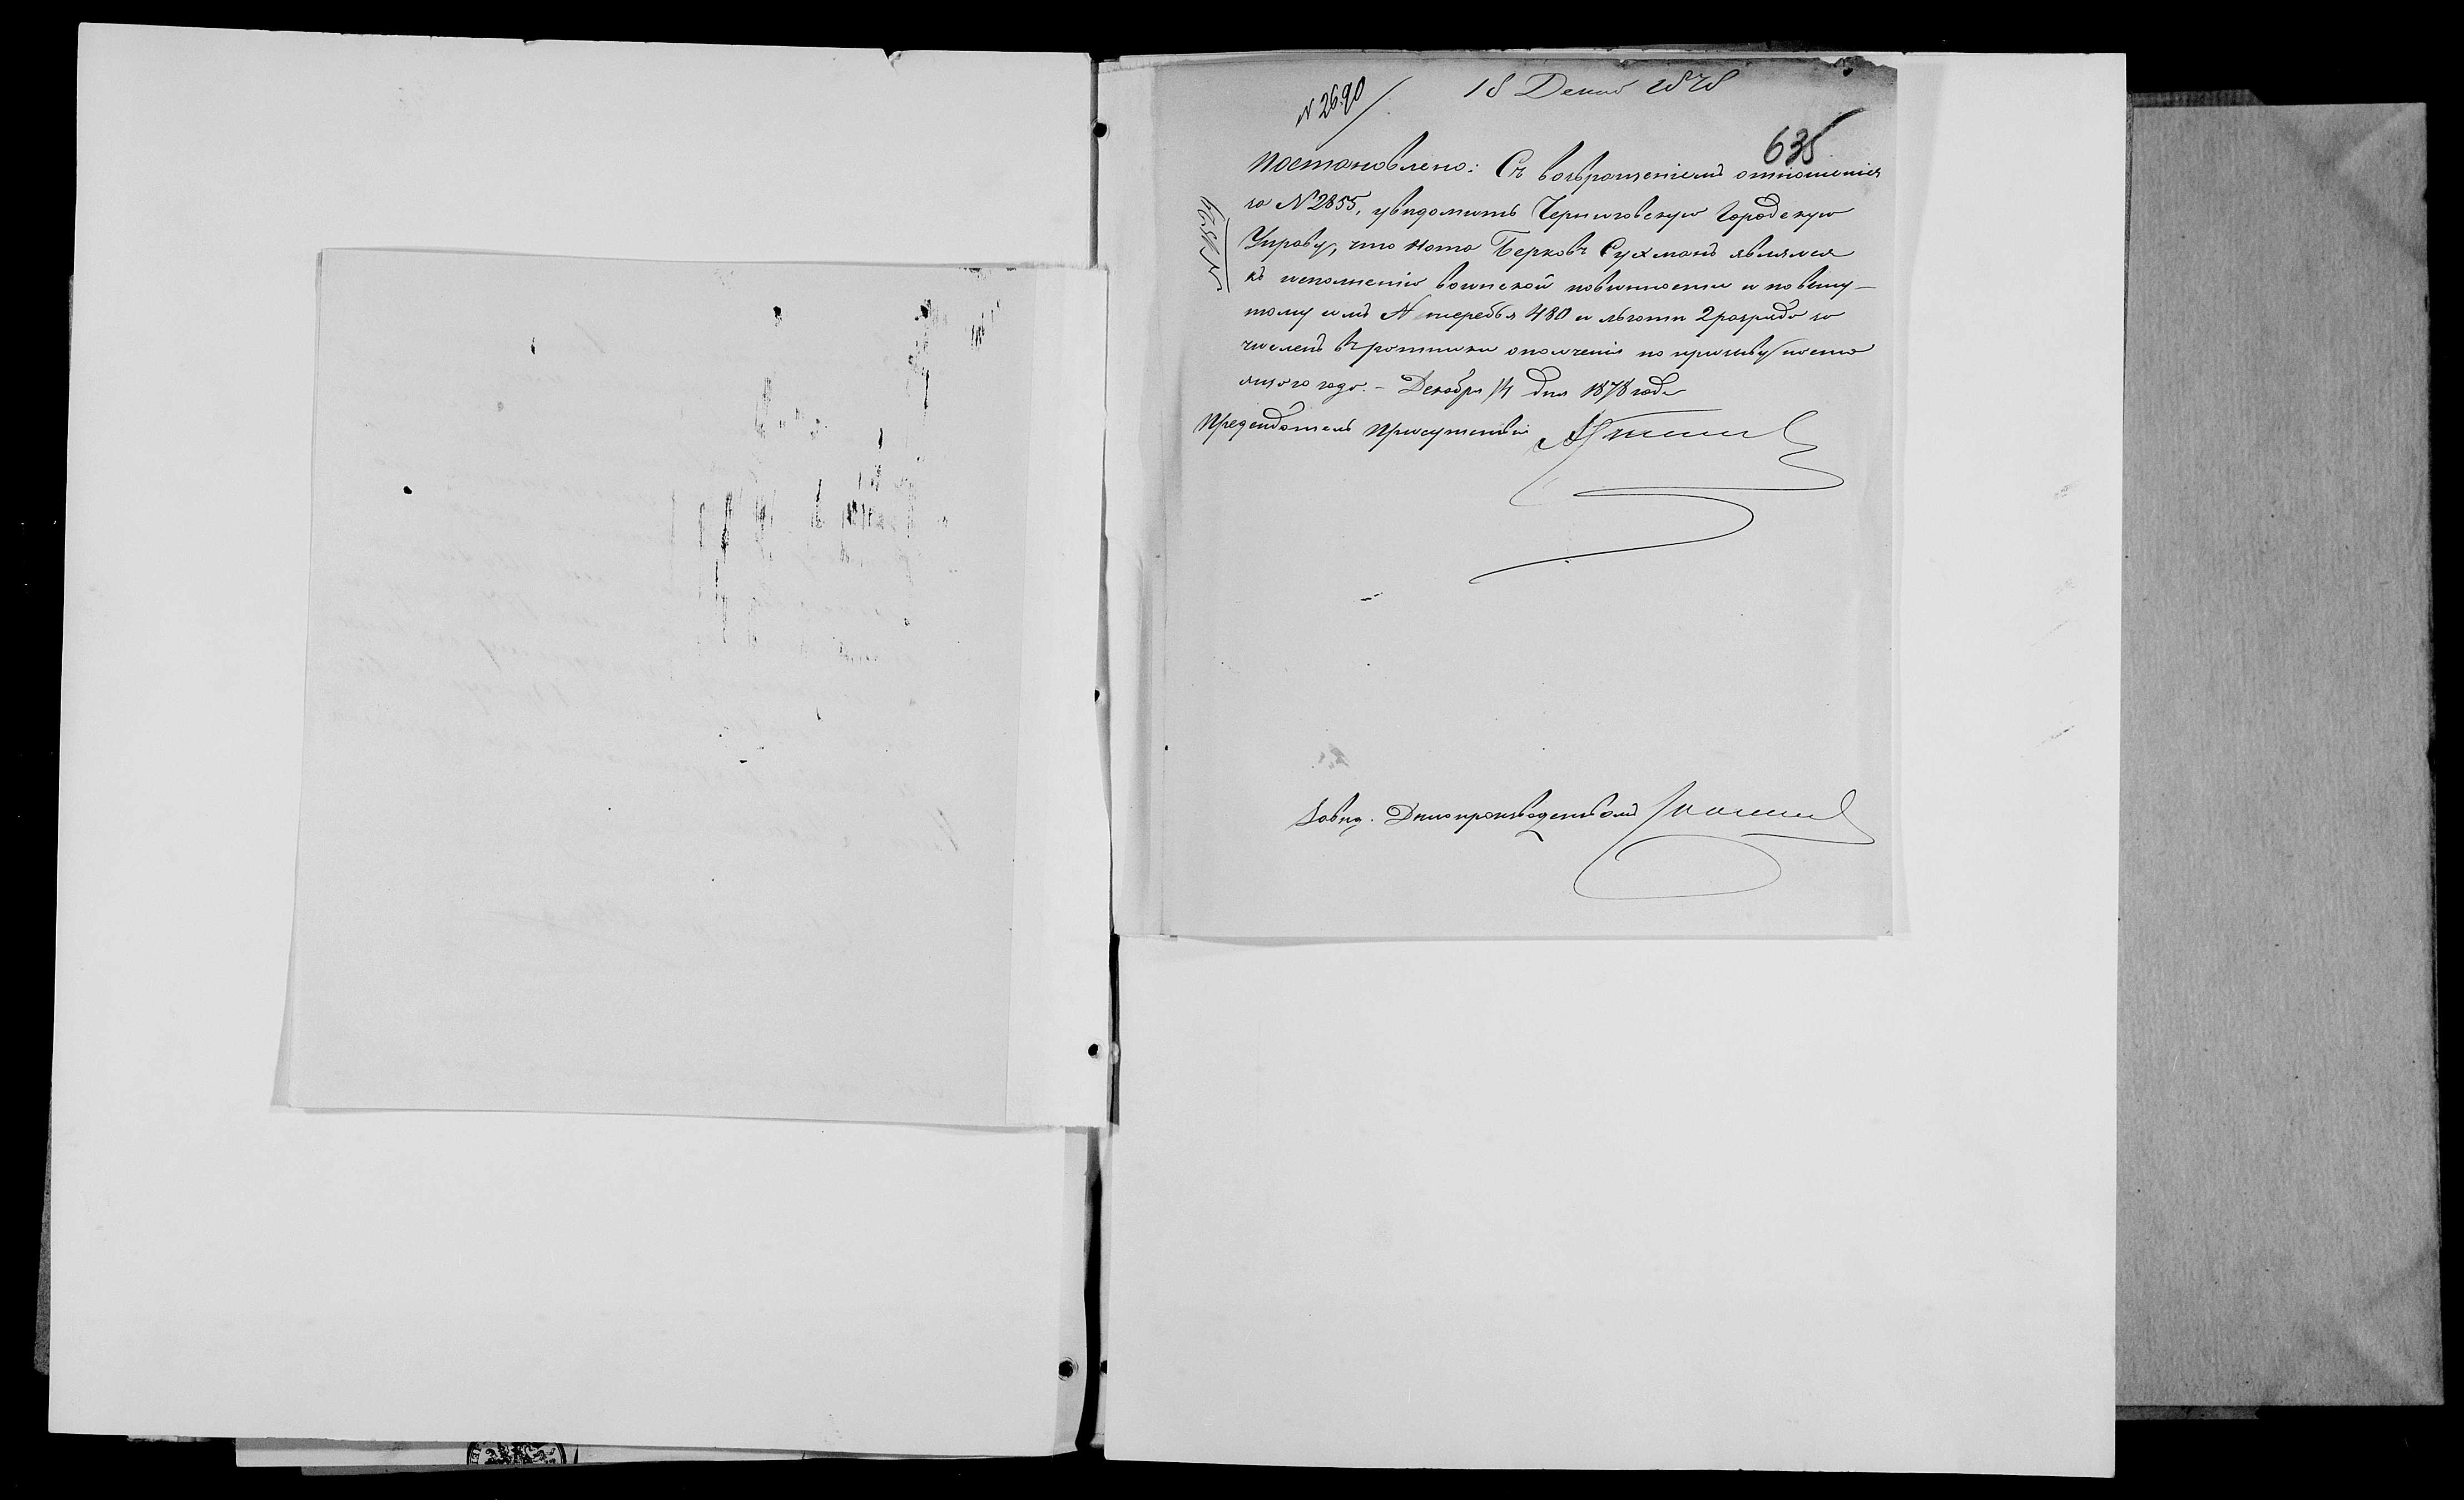 N 2690
18 Декаб 1878
635
Постановлено: Съ возвращеніемъ отношенія
за N 2855, увѣдомить Черниговскую Городскую
Управу, что Нота Берковъ Сухманъ являлся
къ исполненію воинской повинности и по выну-
тому имъ N жеребья 480 и льготи 2 разряда за
численъ въ ратники ополченія по призыву насто
ящаго года. - Декабря 14 дня 1878 года
Предсѣдатель Присутствія
Завѣд. Дѣлопроизводствомъ